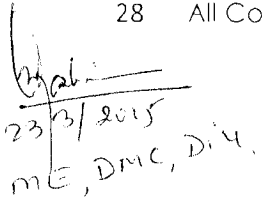 28 All Co
23/3/2015
ME, DMC, DiM.